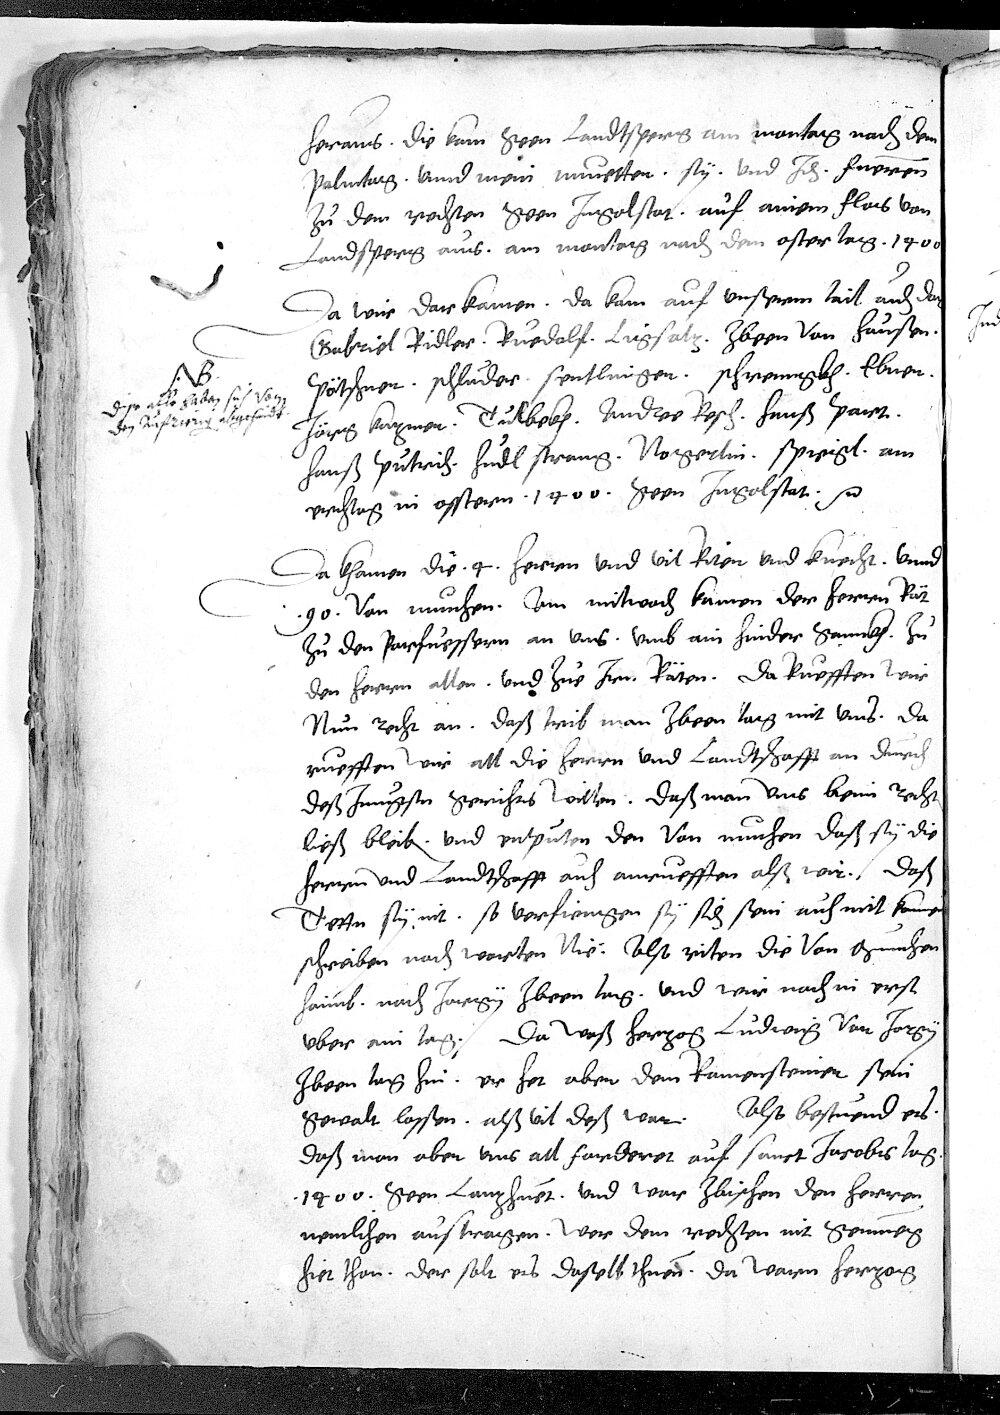 heraus. die kam geen Landtsperg am montag nach dem
Palmtag. unnd mein muetter. sÿ. und Ich. fueren
zu dem rechten geen Ingolstat. auf ainem flos von
Landsperg aus. am montag nach dem ostertag. 1400
Da wir dar kamen. da kam auf unserem tail auch dar
Gabriel Ridler. Ruedolf. Ligsaltz. Zween von Haußen.
Pötschner. schluder. sentlinger. schrennckh. Ebner.
Jörg kazmer. Tulbeckh. Andree Resch. Hanß Part.
Hanß Putrich. Hudl strang. spiegl. am
erchtag in osstern. 1400. geen Ingolstat.
N.B.
dise alle haben sich von
Da khamen die. 4. herren und vil Riter und knecht. unnd
.90. von munchen. Am mitwoch kamen der herrn Rät
zu den Parfuessern an uns. umb ain hinder zu
den herrn allen. und zue Irn. Räten. Da Ruefften wir
Nun recht an. daß trib man Zween tag mit uns. da
ruefften wir all die herrn und Landtschafft an durch
deß Jungstn gerichts willen. daß man uns beim recht
ließ bleib. und enputen den von munchen daß sÿ die
herrn und Landtschafft auch anruefften alß wir. daß
Tetten sÿ nit. so verfiengen sÿ sich sein auch mit kainem
schreiben noch worten Nie. Also riten die von munchen
haimb. nach Zween tag. und wir nach in erst
uber ain tag. Da waß herzog Ludwig von
Zween tag hin. er het aber dem Kamersteiner sein
gewalt lassen. alß vil deß war. Also bestuend es.
daß man aber uns all forderet auf sanct Jacobs tag.
1400. geen Lanzhuet. und war Zwischen den herren
nemlichen austragen. wer dem rechten nit genueg
hiet thon. der solt es daselb thuen. da warn herzog